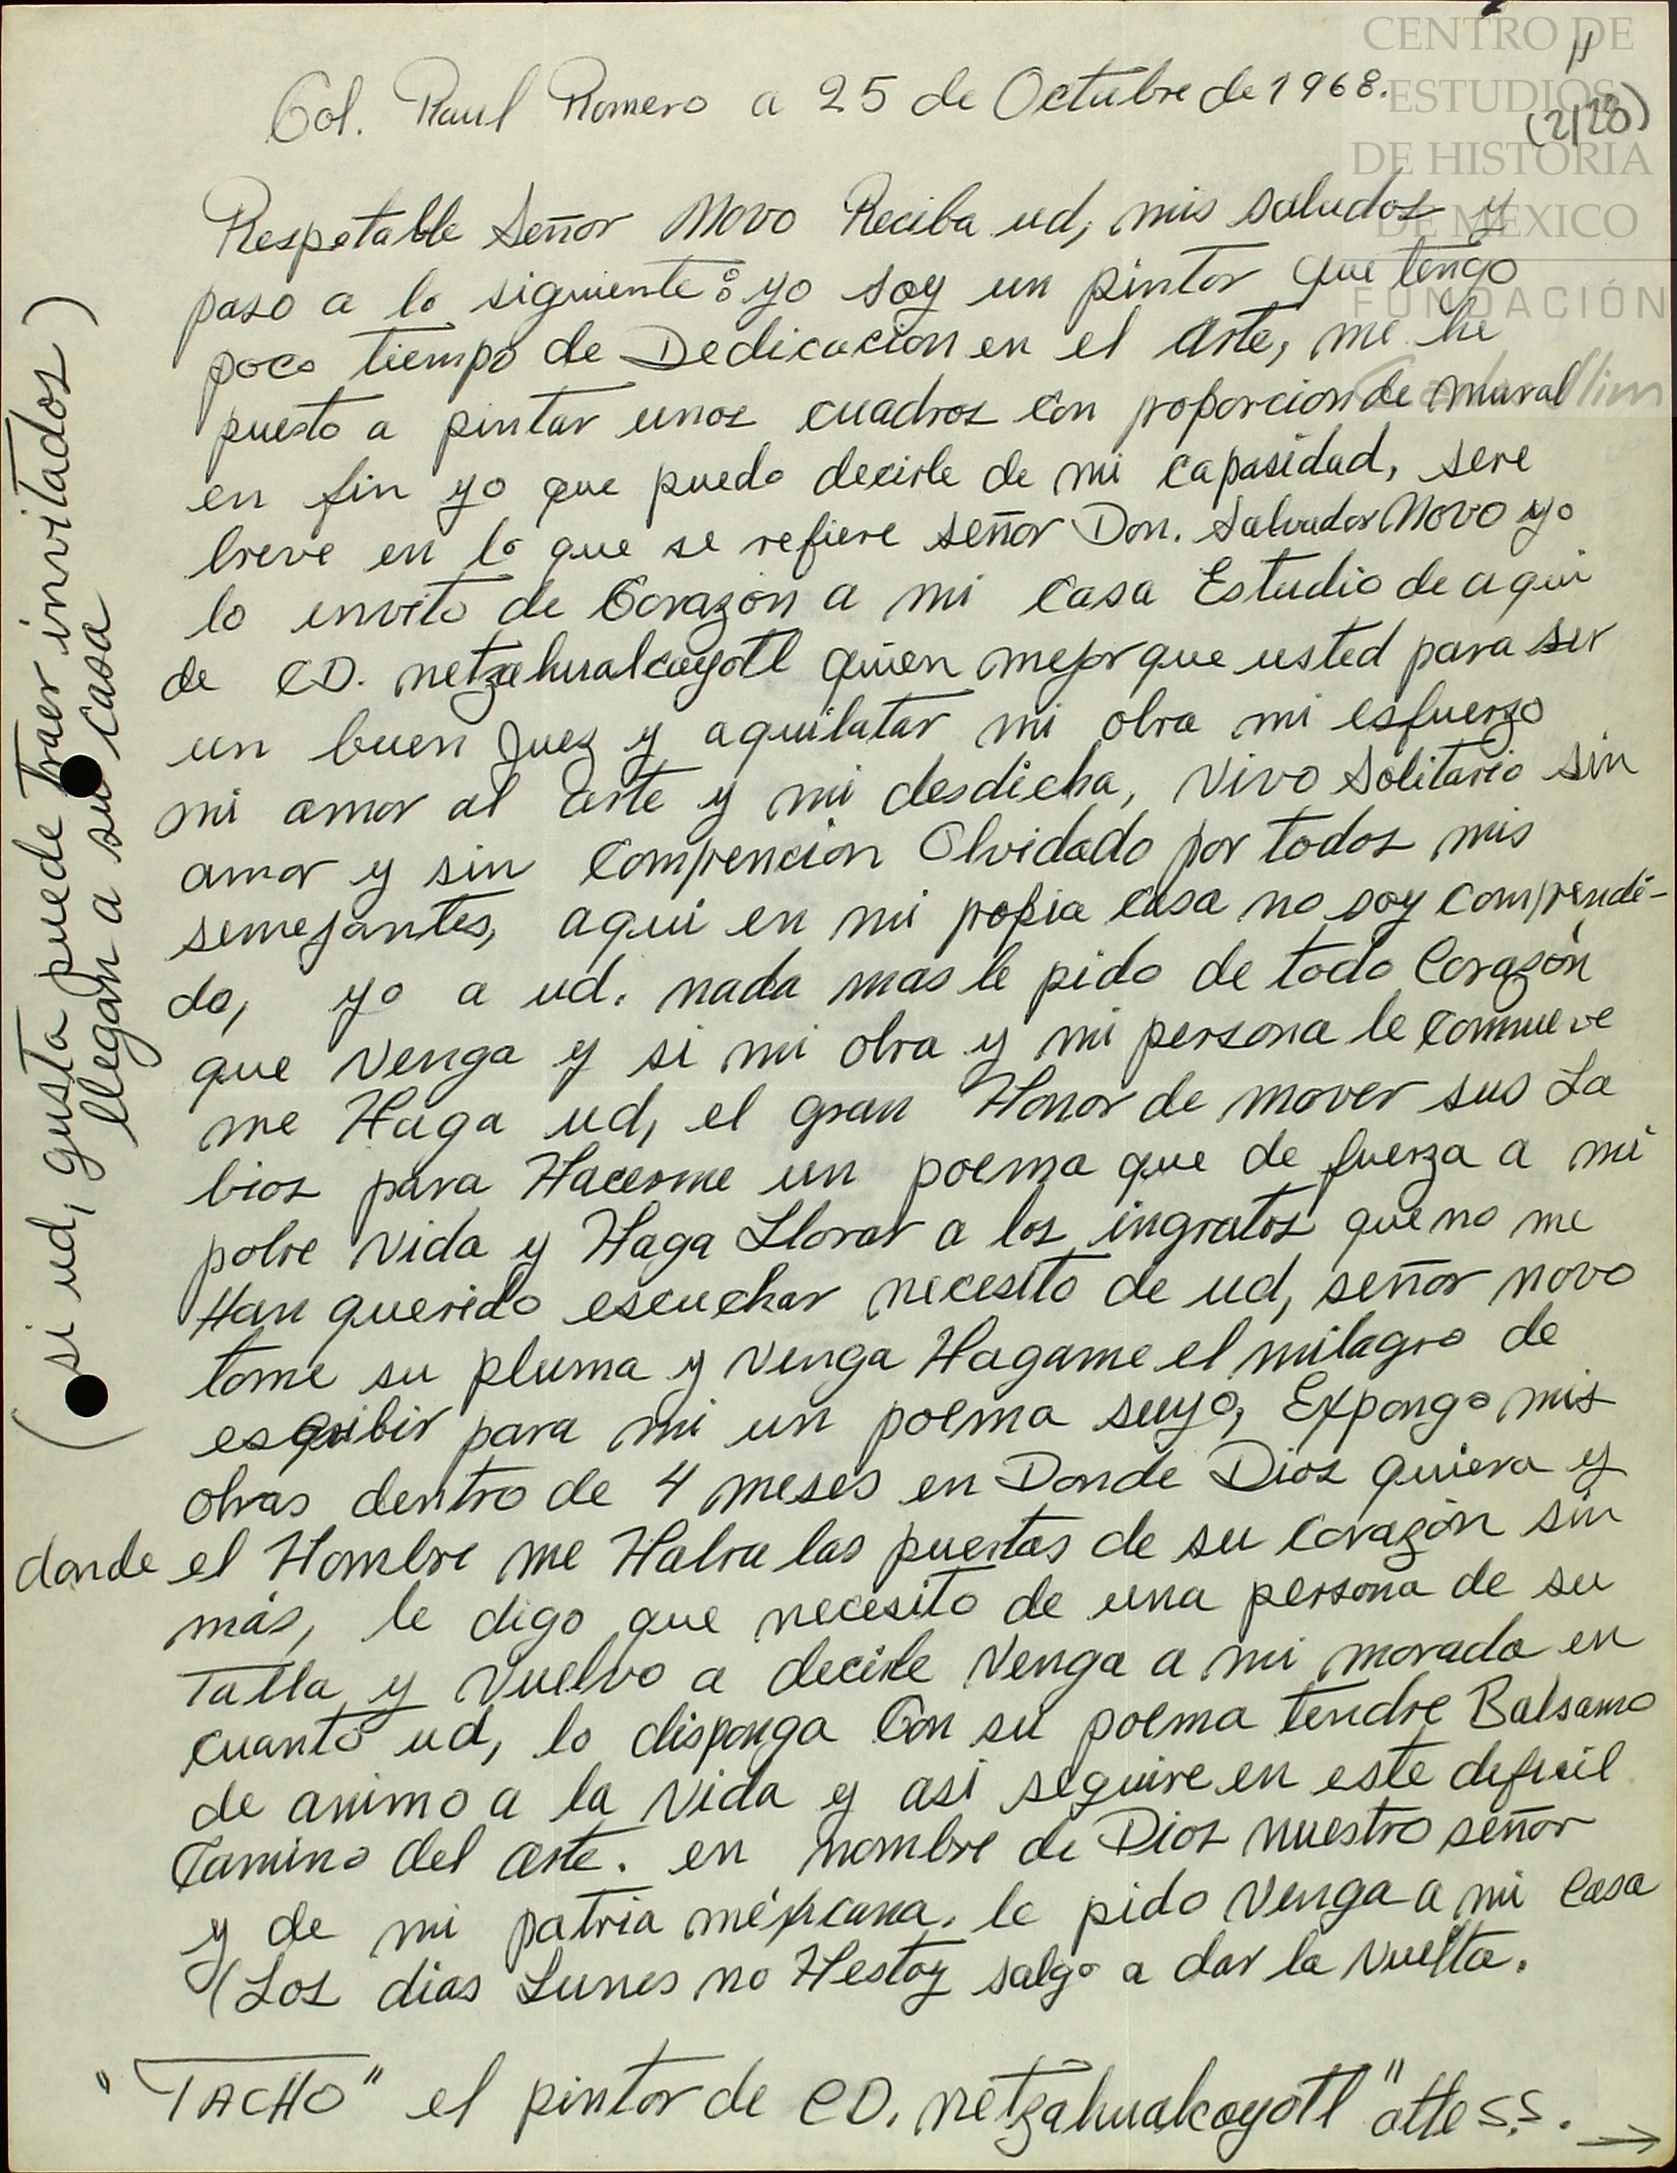 CENTRO DE
ESTUDIOS
DE HISTORIA
DE MÉXICO
FUNDACIÓN
Carlos Slim
(2/28)
Col. Raul Romero a 25 de Octubre de 1968.
Respetable Señor Novo Reciba ud, mis saludos y
paso a lo siguiente: yo soy un pintor que tengo
poco tiempo de Dedicacion en el Arte, me he
puesto a pintar unos cuadros con proporcion de mural
en fin yo que puedo decirle de mi capasidad, sere
breve en lo que se refiere señor Don. Salvador Novo yo
lo invito de Corazón a mi Casa Estudio de aqui
de CD. netzahualcoyotl quien mejor que usted para ser
un buen Juez y aquilatar mi obra mi esfuerzo
mi amor al arte y mi desdicha, vivo Solitario sin
amor y sin Comprencion Olvidado por todos mis
semejantes, aqui en mi propia casa no soy comprendi-
do, yo a ud. nada mas le pido de todo Corazón
que Venga y si mi obra y mi persona le conmueve
me Haga ud, el gran Honor de mover sus La
bios para Hacerme un poema que de fuerza a mi
pobre vida y Haga Llorar a los ingratos que no me
Han querido escuchar necesito de ud, señor novo
tome su pluma y venga Hagame el milagro de
esquibir para mi un poema suyo, Expongo mis
obras dentro de 4 meses en Donde Dios quiera y
donde el Hombre me Habra las puertas de su Corazón sin
más, le digo que necesito de una persona de su
Talla y Vuelvo a decirle Venga a mi morada en
cuanto ud, lo disponga Con su poema tendre Balsamo
de animo a la vida y asi seguire en este dificil
Camino del arte. en nombre de Dios nuestro señor
y de mi patria méxicana. le pido Venga a mi Casa
(Los dias Lunes no Hestoy salgo a dar la vuelta.
"TACHO" el pintor de CD. netzahualcoyotl" atte S.S. →
(si ud, gusta puede traer invitados)
llegan a su casa